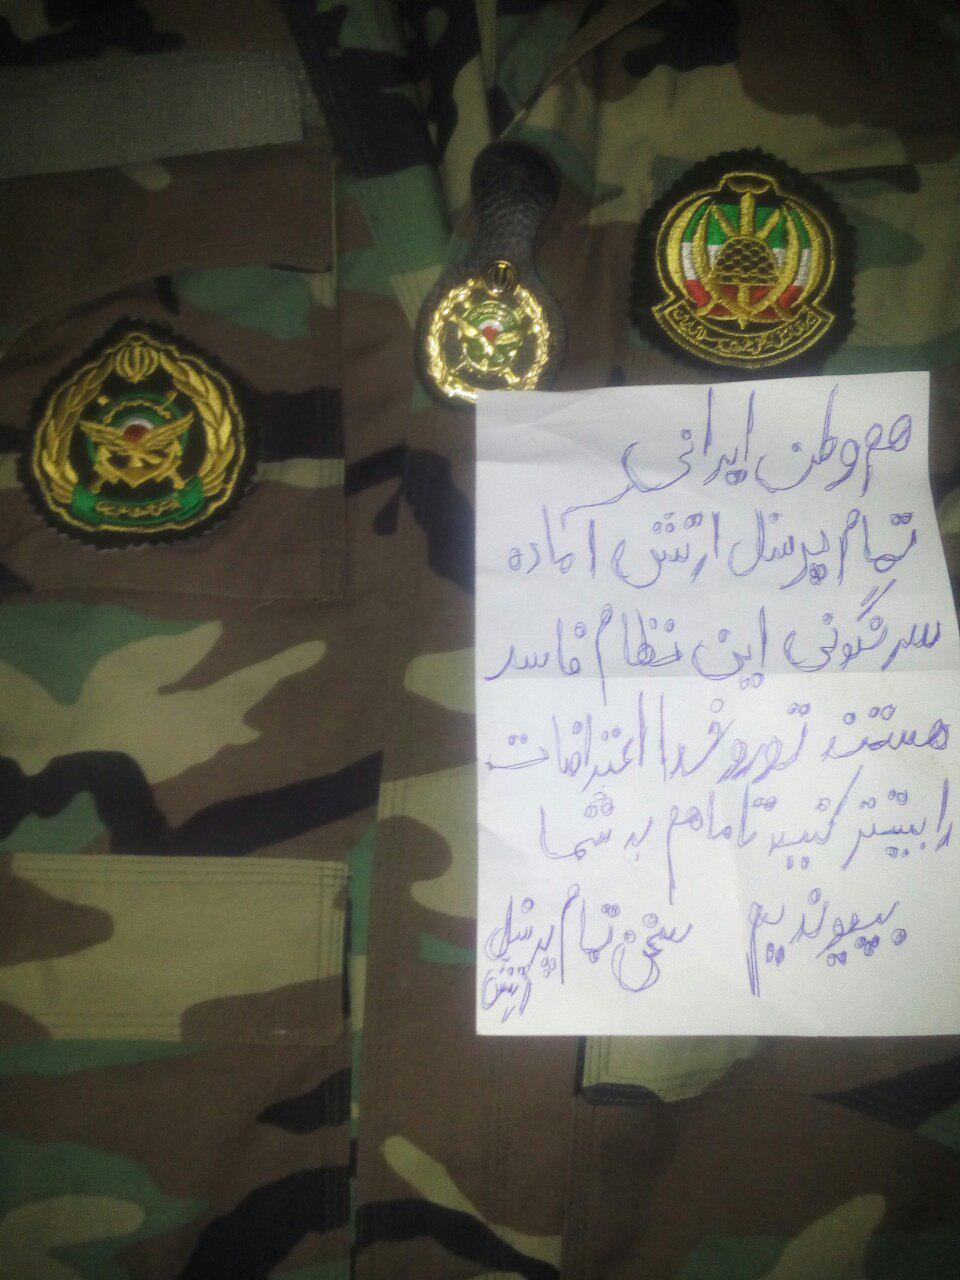 هم وطن ایرانی
تمام پرسنل ارتش آماده
سرنگونی این نظام فاسد
هستند تورو خدا اعتراضات
را بیشتر کنید تا ما هم به شما
بپیوندیم سخن تمام پرسنل
ارتش